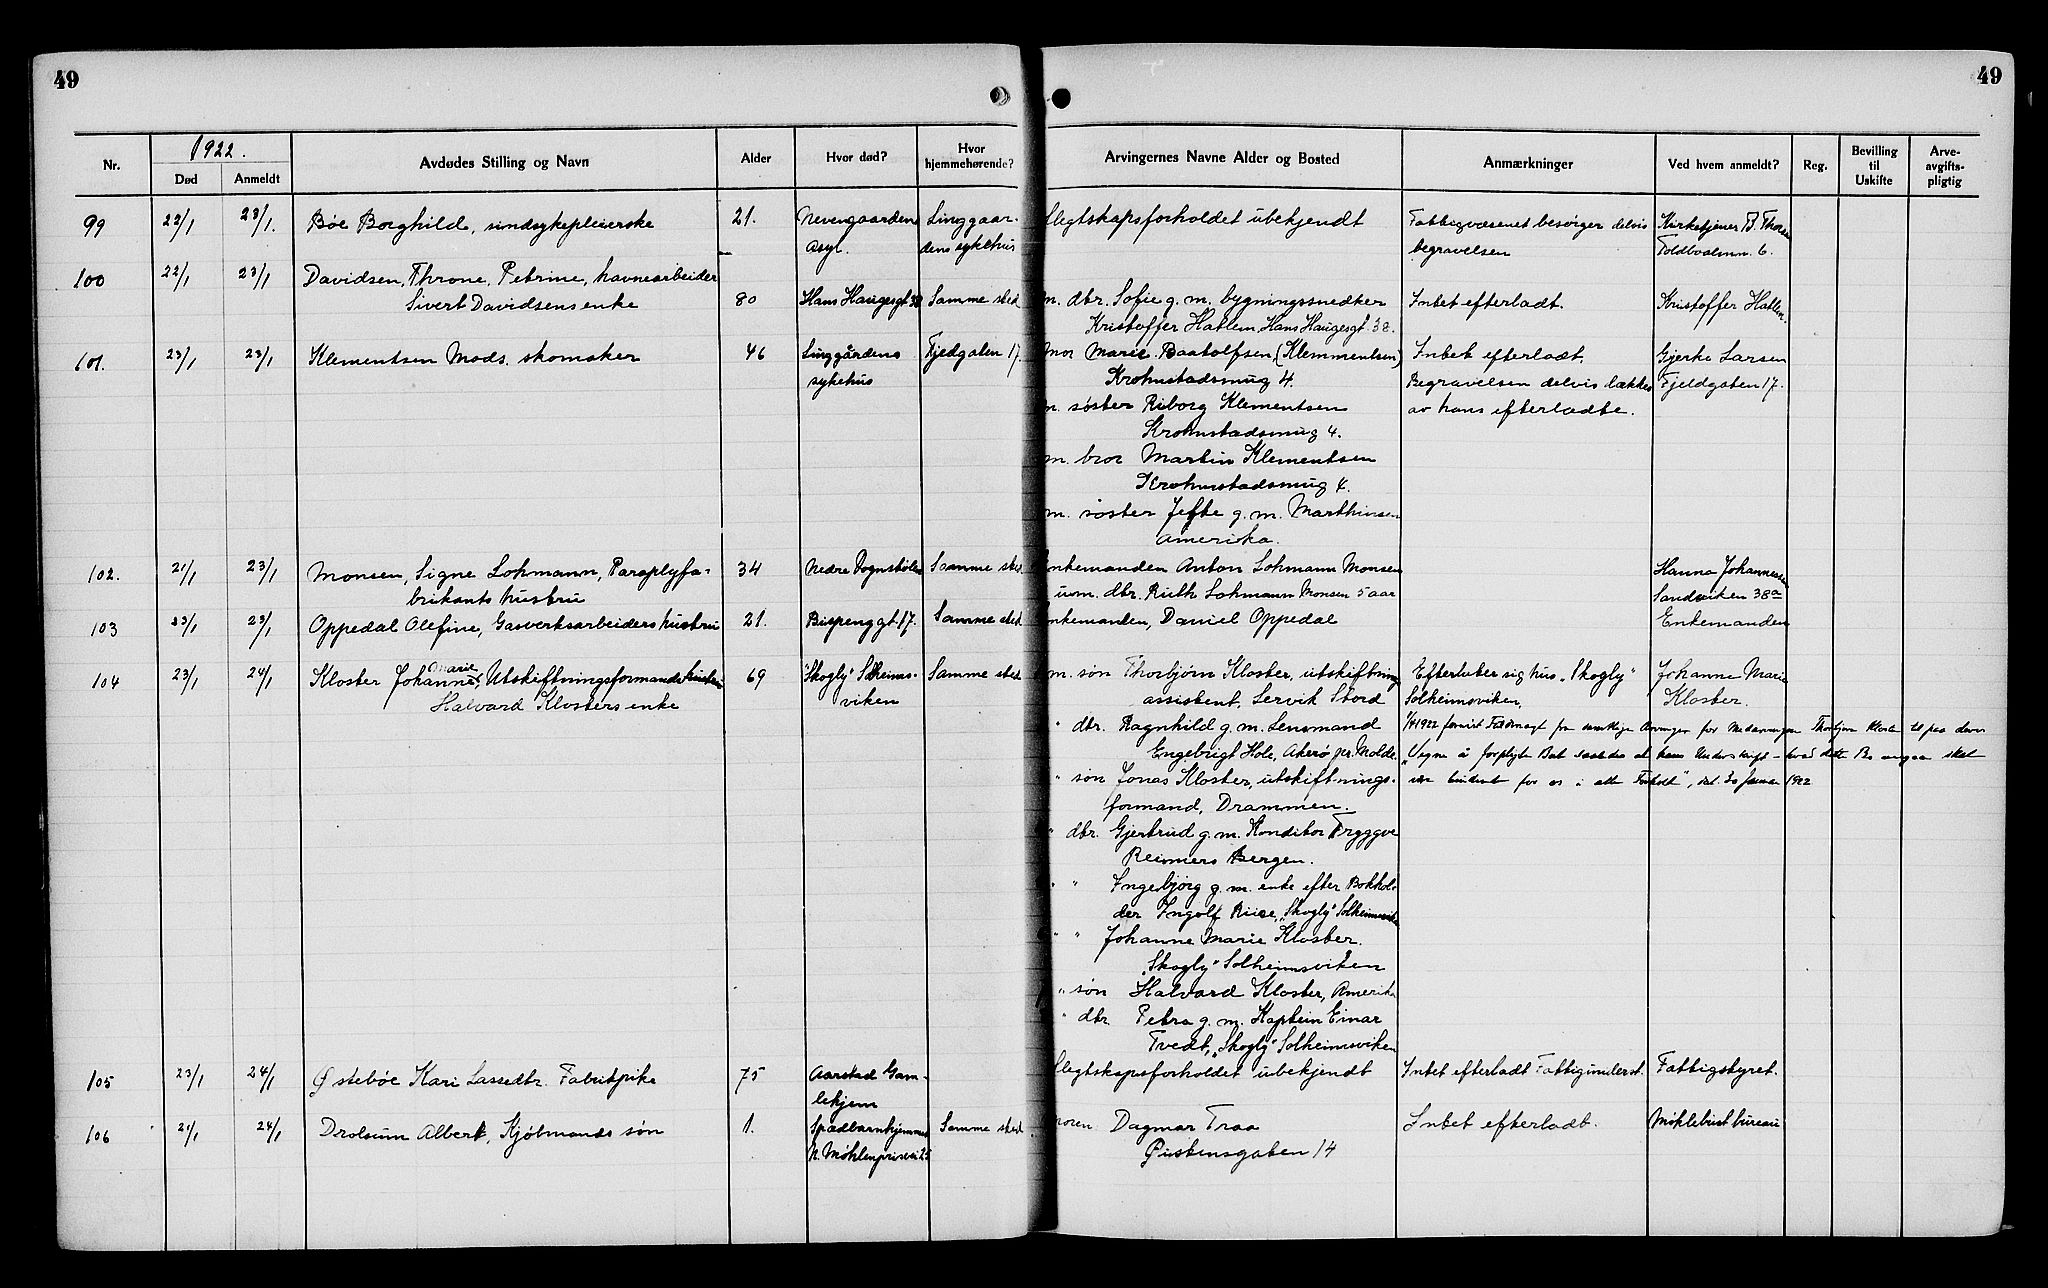 49
49
1922.
Nr.
Død
Anmeldt
Avdødes Stilling og Navn
Alder
Hvor død?
Hvor hjemmehørende?
Arvingernes Navne Alder og Bosted
Anmærkninger
Ved hvem anmeldt?
Reg.
Bevilling til Uskifte
Arve-avgifts-pligtig
99 22/1 23/1. Bøe Borghild, sindsykepleierske 21. Nevengaardens Linggaar- slegtskapsforholdet ubekjendt Fattigvæsenet besørger delvis Kirketjener B. Thorsen
Asyl. dens sykehus begravelsen Toldbodalmn. 6.
100 22/1 23/1 Davidsen, Throne, Petrine, havnearbeider
Sivert Davidsens enke 80 Hans Haugesgt 38 Samme sted m. dtr. Sofie g. m. bygningssnedker Intet efterladt. Kristoffer Hatlem.
Kristoffer Hatlem, Hans Haugesgt. 38.
101. 23/1 23/1 Klementsen Mads. skomaker 46 Linggårdens Fjeldgaten 17. mor Marie Baatolfsen (Klemmentsen) Intet efterladt. Gjerke Larsen
sykehus Krohnstadsmug 4. Begravelsen delvis dækkes Fjeldgaten 17.
m. søster Riborg Klementsen av hans efterladte.
Krohnstadsmug 4.
m. bror Martin Klementsen
Krohnstadsmug 4.
m. søster Jefte g. m. Marthinsen
Amerika.
102. 21/1 23/1 Monsen, Signe Lohmann, Paraplyfa- 34 Nedre Samme sted. Enkemanden Anton Lohmann Monsen Hanna Johannessen
brikants hustru um. dtr. Ruth Lohmann Monsen 5 aar Sandviken 38a
103 23/1 23/1 Oppedal Olefine, Gasverksarbeiders hustru 21. Bispenggt. 17. Samme sted. Enkemanden, Daniel Oppedal Enkemanden
104 23/1 24/1 Kloster Johanne Marie, Utskiftningsformands hustru 69 "Skogly" Solheims- Samme sted. m. søn Thorbjørn Kloster, utskiftnings Efterlater sig hus „Skogly" Johanne Marie
Halvard Klosters enke viken assistent, Lervik Stord Solheimsviken. Kloster.
" dtr. Ragnhild g. m. Lensmand 1922 fra Arvinger for Thorbjørn Kloster til paa deres
Engebrigt Hole, Akerø pr. Molde. Vegne å forplygte Boet saaledes at hans Underskrift skal
" søn Jonas Kloster, utskiftnings- være bindende for os i alle Forhold", 1922
formand, Drammen.
" dtr. Gjertrud g. m. Konditor Trygve
Reimers Bergen.
" " Ingebjørg g. m. enke efter Bokhol-
der Ingolf Riise, „Skogly" Solheimsviken
" " Johanne Marie Kloster.
„Skogly" Solheimsviken
" søn Halvard Kloster, Amerika
" dtr. Petra g. m. Kaptein Einar
Tvedt, „Skogly" Solheimsviken
105 23/1 24/1 Østebøe Kari Lassedtr. Fabrikpike 75 Aarstad Gam- slegtskapsforholdet ubekjendt Intet efterladt Fattigunderst. Fattigstyret.
lehjem
106 21/1 24/1 Drolsum Albert, Kjølmands søn 1. Spædbarnhjemmet Samme sted moren Dagmar Traa Intet efterladt. Møhlebust bureau
N. Møhlenprisvei 25 Øistensgaten 14